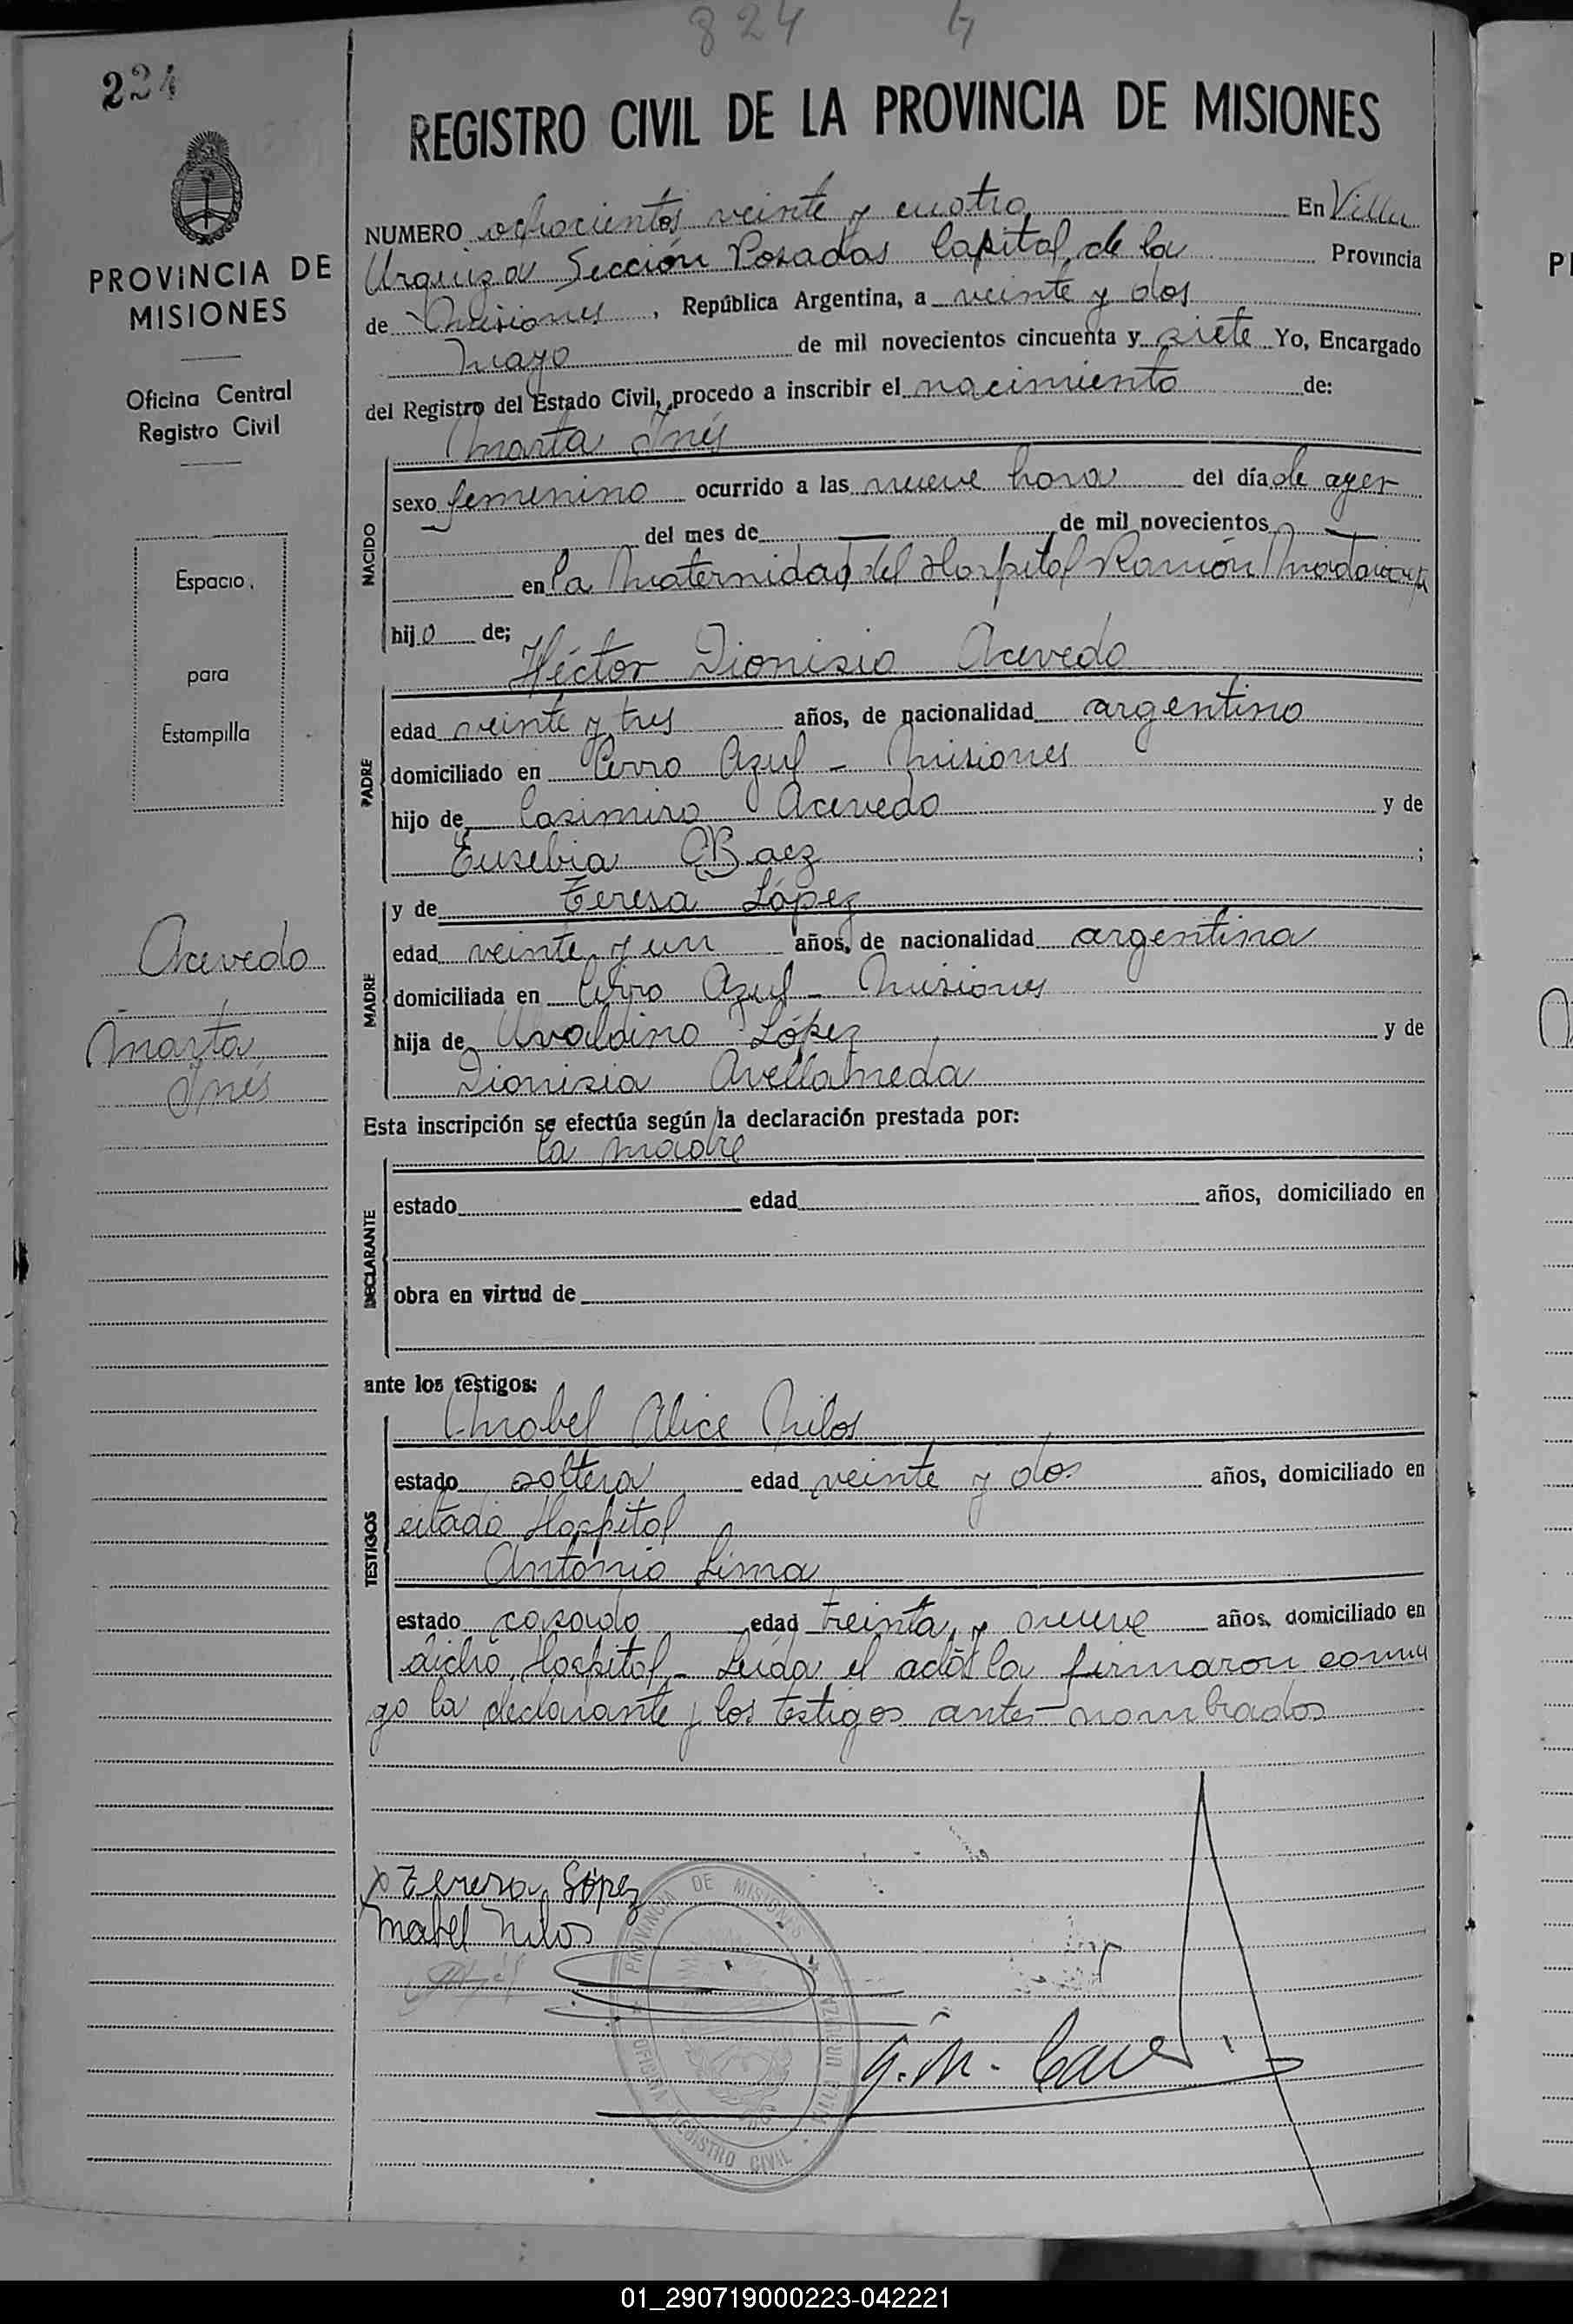 824
224
PROVINCIA DE
MISIONES
Oficina Central
Registro Civil
Espacio
para
Estampilla
Acevedo
Marta
Inés
REGISTRO CIVIL DE LA PROVINCIA DE MISIONES
NUMERO ochocientos veinte y cuatro En Villa
Urquiza Sección Posadas Capital de la Provincia
de Misiones, República Argentina, a veinte y dos
Mayo de mil novecientos cincuenta y siete Yo, Encargado
del Registro del Estado Civil, procedo a inscribir el nacimiento de:
Marta Inés
NACIDO
sexo femenino ocurrido a las nueve hora del día de ayer
— del mes de — de mil novecientos —
en la Maternidad del Hospital Ramón Madariaga
hijo de;
Héctor Dionisio Acevedo
PADRE
edad veinte y tres años, de nacionalidad argentino
domiciliado en Cerro Azul - Misiones
hijo de Casimiro Acevedo y de
Eusebia Baez ;
y de Teresa López
MADRE
edad veinte y un años, de nacionalidad argentina
domiciliada en Cerro Azul - Misiones
hija de Uvaldino López y de
Dionisia Avellaneda
Esta inscripción se efectúa según la declaración prestada por:
la madre
DECLARANTE
estado edad años, domiciliado en
obra en virtud de
ante los testigos:
Mabel Alice Nilos
TESTIGOS
estado soltera edad veinte y dos años, domiciliado en
citado Hospital
Antonio Lima
estado casado edad treinta y nueve años, domiciliado en
dicho Hospital - Leída el acta la firmaron conmi
go la declarante y los testigos antes nombrados
x Teresa López
Mabel Nilos
PROVINCIA DE MISIONES
OFICINA REGISTRO CIVIL
VILLA URQUIZA
01_290719000223-042221